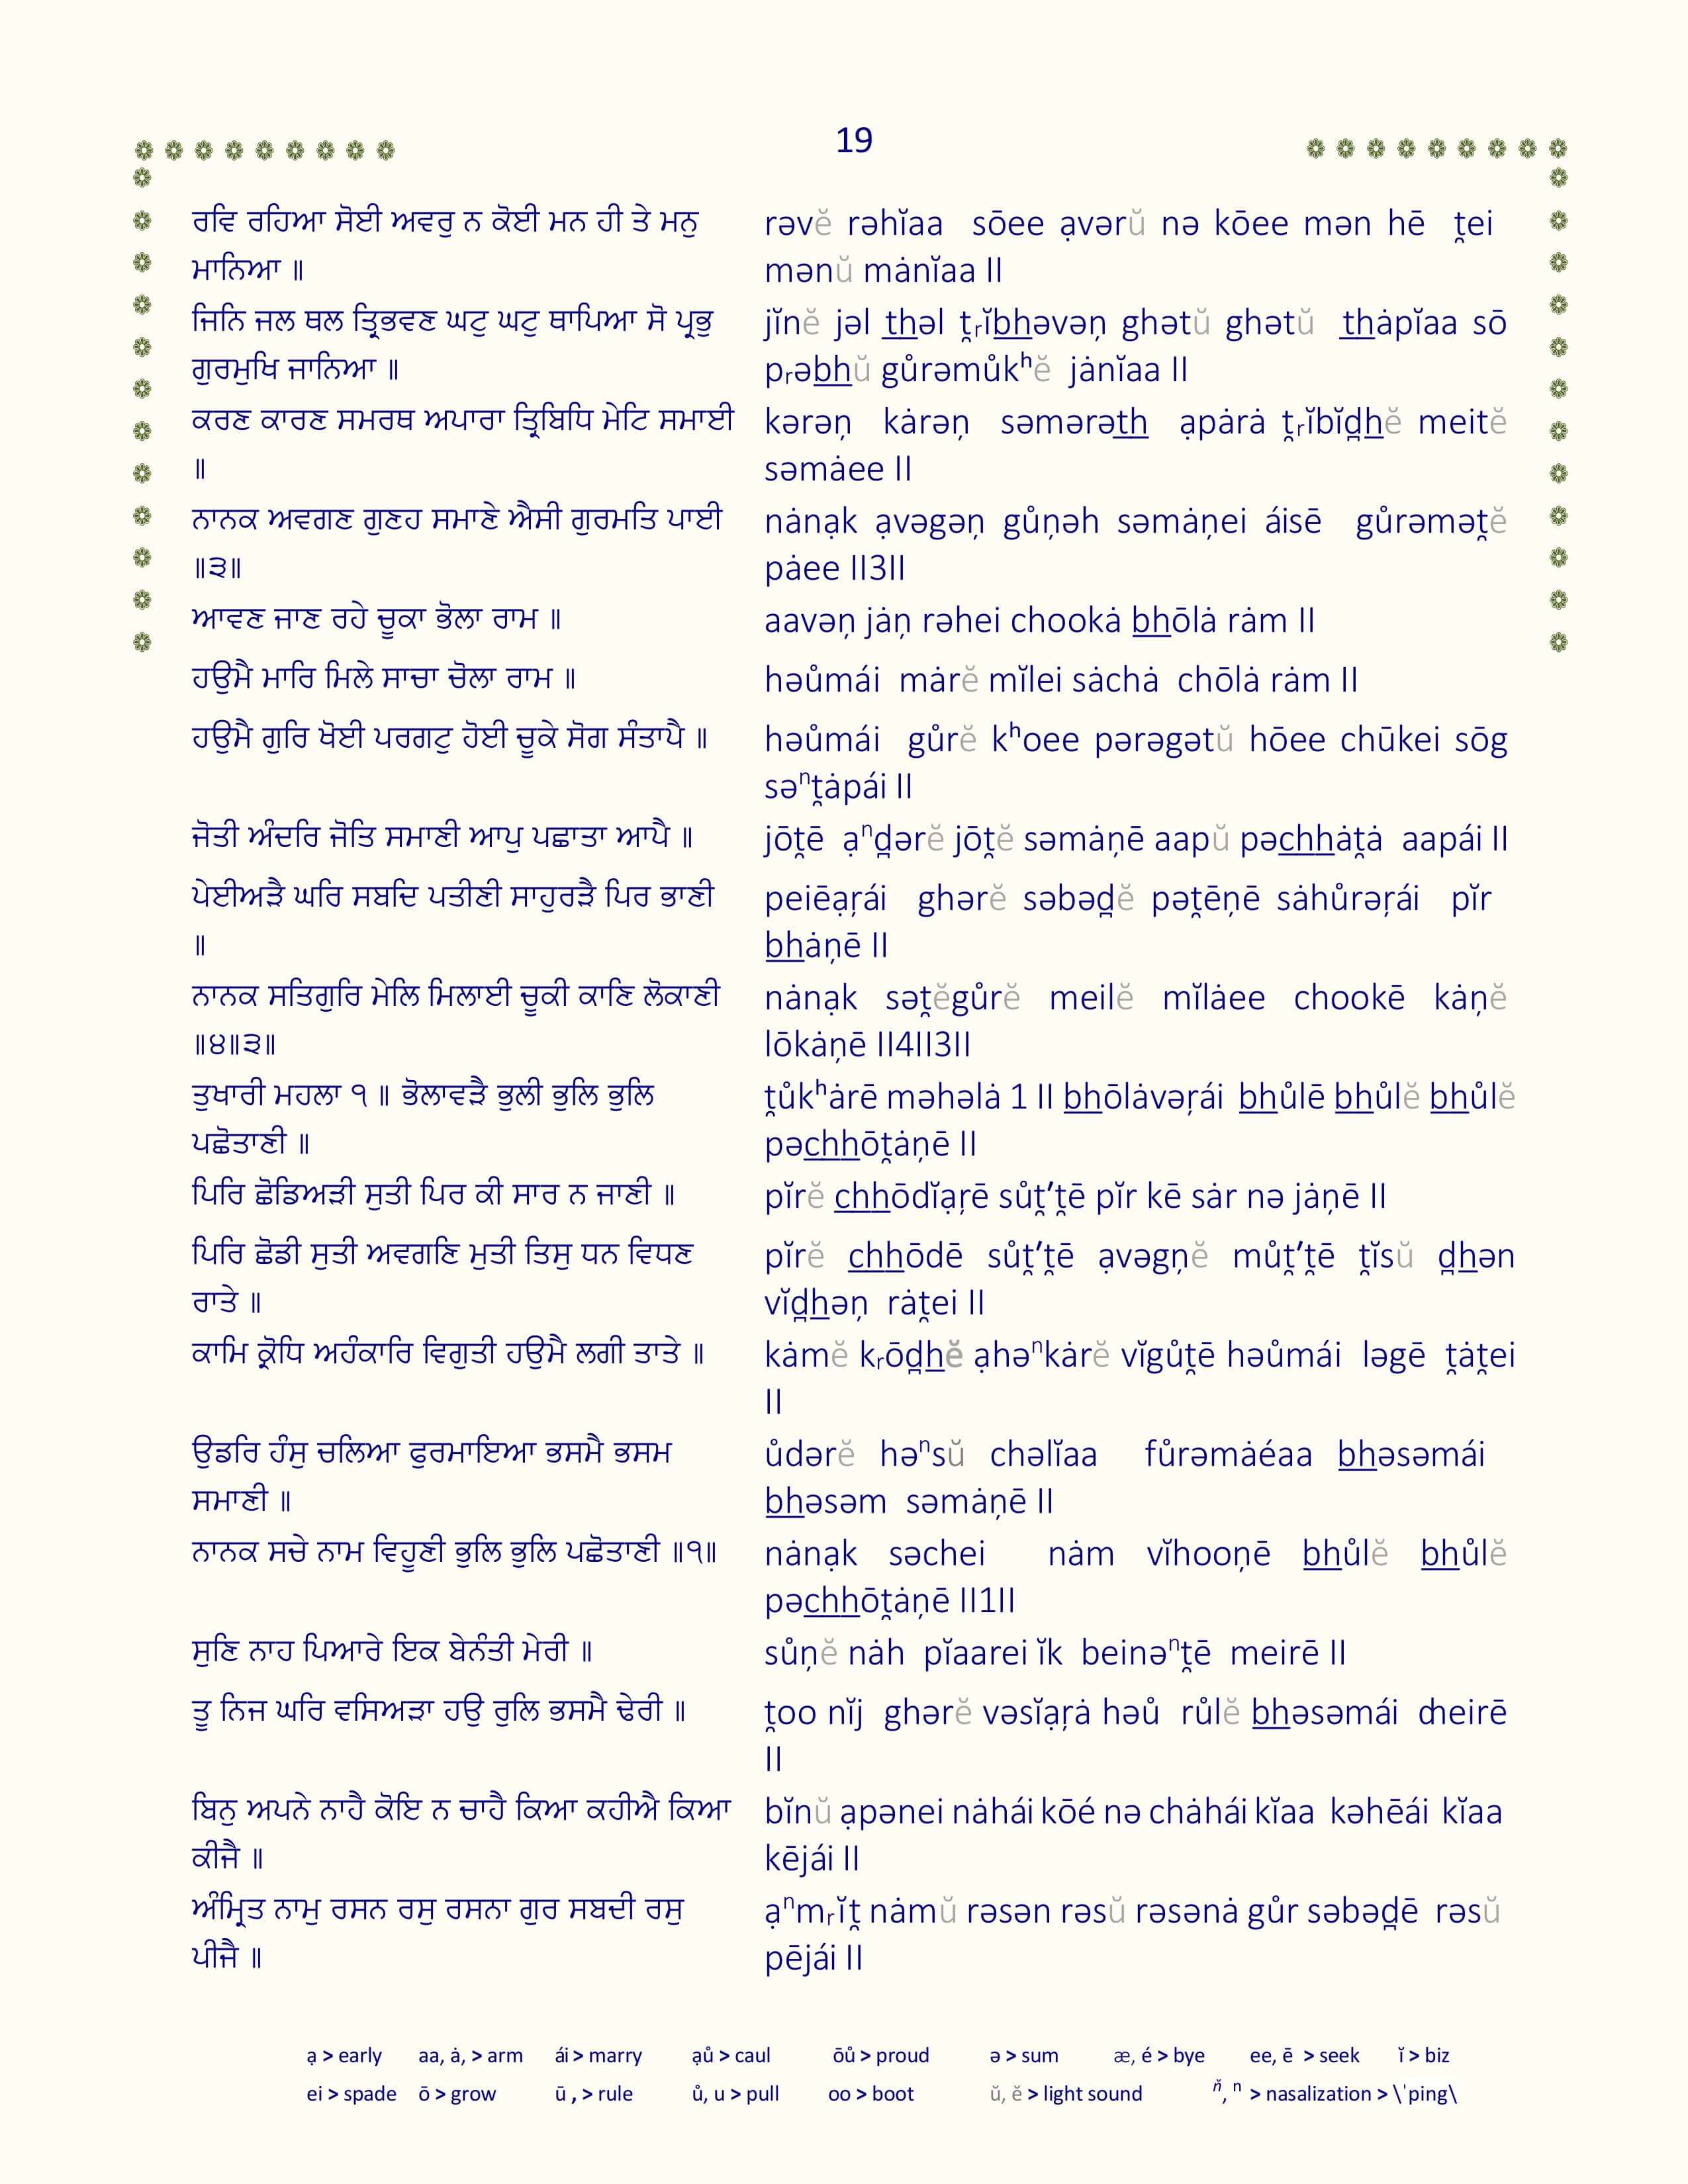 19
ਰਵਿ ਰਹਿਆ ਸੋਈ ਅਵਰੁ ਨ ਕੋਈ ਮਨ ਹੀ ਤੇ ਮਨੁ
ਮਾਨਿਆ ॥
rəvĕ rəhĭaa sōee ạvərŭ nə kōee mən hē t̯ei
mənŭ mȧnĭaa II
ਜਿਨਿ ਜਲ ਥਲ ਤ੍ਰਿਭਵਣ ਘਟੁ ਘਟੁ ਥਾਪਿਆ ਸੋ ਪ੍ਰਭੁ
ਗੁਰਮੁਖਿ ਜਾਨਿਆ ॥
jĭnĕ jəl thəl t̯ᵣĭbhəvəņ ghətŭ ghətŭ thȧpĭaa sō
pᵣəbhŭ gůrəmůkʰĕ jȧnĭaa II
ਕਰਣ ਕਾਰਣ ਸਮਰਥ ਅਪਾਰਾ ਤ੍ਰਿਬਿਧਿ ਮੇਟਿ ਸਮਾਈ
॥
kərəņ kȧrəņ səmərəth ạpȧrȧ t̯ᵣĭbĭd̯hĕ meitĕ
səmȧee II
ਨਾਨਕ ਅਵਗਣ ਗੁਣਹ ਸਮਾਣੇ ਐਸੀ ਗੁਰਮਤਿ ਪਾਈ
॥੩॥
nȧnạk ạvəgəņ gůņəh səmȧņei áisē gůrəmət̯ĕ
pȧee II3II
ਆਵਣ ਜਾਣ ਰਹੇ ਚੂਕਾ ਭੋਲਾ ਰਾਮ ॥
aavəņ jȧņ rəhei chookȧ bhōlȧ rȧm II
ਹਉਮੈ ਮਾਰਿ ਮਿਲੇ ਸਾਚਾ ਚੋਲਾ ਰਾਮ ॥
həůmái mȧrĕ mĭlei sȧchȧ chōlȧ rȧm II
ਹਉਮੈ ਗੁਰਿ ਖੋਈ ਪਰਗਟੁ ਹੋਈ ਚੂਕੇ ਸੋਗ ਸੰਤਾਪੈ ॥
həůmái gůrĕ kʰoee pərəgətŭ hōee chūkei sōg
səⁿt̯ȧpái II
ਜੋਤੀ ਅੰਦਰਿ ਜੋਤਿ ਸਮਾਣੀ ਆਪੁ ਪਛਾਤਾ ਆਪੈ ॥
jōt̯ē ạⁿd̯ərĕ jōt̯ĕ səmȧņē aapŭ pəchhȧt̯ȧ aapái II
ਪੇਈਅੜੈ ਘਰਿ ਸਬਦਿ ਪਤੀਣੀ ਸਾਹੁਰੜੈ ਪਿਰ ਭਾਣੀ
॥
peiēạŗái ghərĕ səbəd̯ĕ pət̯ēņē sȧhůrəŗái pĭr
bhȧņē II
ਨਾਨਕ ਸਤਿਗੁਰਿ ਮੇਲਿ ਮਿਲਾਈ ਚੂਕੀ ਕਾਣਿ ਲੋਕਾਣੀ
॥੪॥੩॥
nȧnạk sət̯ĕgůrĕ meilĕ mĭlȧee chookē kȧņĕ
lōkȧņē II4II3II
ਤੁਖਾਰੀ ਮਹਲਾ ੧ ॥ ਭੋਲਾਵੜੈ ਭੁਲੀ ਭੁਲਿ ਭੁਲਿ
ਪਛੋਤਾਣੀ ॥
t̯ůkʰȧrē məhəlȧ 1 II bhōlȧvəŗái bhůlē bhůlĕ bhůlĕ
pəchhōt̯ȧņē II
ਪਿਰਿ ਛੋਡਿਅੜੀ ਸੁਤੀ ਪਿਰ ਕੀ ਸਾਰ ਨ ਜਾਣੀ ॥
pĭrĕ chhōdĭạŗē sůt̯’t̯ē pĭr kē sȧr nə jȧņē II
ਪਿਰਿ ਛੋਡੀ ਸੁਤੀ ਅਵਗਣਿ ਮੁਤੀ ਤਿਸੁ ਧਨ ਵਿਧਣ
ਰਾਤੇ ॥
pĭrĕ chhōdē sůt̯’t̯ē ạvəgņĕ můt̯’t̯ē t̯ĭsŭ d̯hən
vĭd̯həņ rȧt̯ei II
ਕਾਮਿ ਕ੍ਰੋਧਿ ਅਹੰਕਾਰਿ ਵਿਗੁਤੀ ਹਉਮੈ ਲਗੀ ਤਾਤੇ ॥
kȧmĕ kᵣōd̯hĕ ạhəⁿkȧrĕ vĭgůt̯ē həůmái ləgē t̯ȧt̯ei
II
ਉਡਰਿ ਹੰਸੁ ਚਲਿਆ ਫੁਰਮਾਇਆ ਭਸਮੈ ਭਸਮ
ਸਮਾਣੀ ॥
ůdərĕ həⁿsŭ chəlĭaa fůrəmȧéaa bhəsəmái
bhəsəm səmȧņē II
ਨਾਨਕ ਸਚੇ ਨਾਮ ਵਿਹੂਣੀ ਭੁਲਿ ਭੁਲਿ ਪਛੋਤਾਣੀ ॥੧॥
nȧnạk səchei nȧm vĭhooņē bhůlĕ bhůlĕ
pəchhōt̯ȧņē II1II
ਸੁਣਿ ਨਾਹ ਪਿਆਰੇ ਇਕ ਬੇਨੰਤੀ ਮੇਰੀ ॥
sůņĕ nȧh pĭaarei ĭk beinəⁿt̯ē meirē II
ਤੂ ਨਿਜ ਘਰਿ ਵਸਿਅੜਾ ਹਉ ਰੁਲਿ ਭਸਮੈ ਢੇਰੀ ॥
t̯oo nĭj ghərĕ vəsĭạŗȧ həů růlĕ bhəsəmái ȸheirē
II
ਬਿਨੁ ਅਪਨੇ ਨਾਹੈ ਕੋਇ ਨ ਚਾਹੈ ਕਿਆ ਕਹੀਐ ਕਿਆ
ਕੀਜੈ ॥
bĭnŭ ạpənei nȧhái kōé nə chȧhái kĭaa kəhēái kĭaa
kējái II
ਅੰਮ੍ਰਿਤ ਨਾਮੁ ਰਸਨ ਰਸੁ ਰਸਨਾ ਗੁਰ ਸਬਦੀ ਰਸੁ
ਪੀਜੈ ॥
ạⁿmᵣĭt̯ nȧmŭ rəsən rəsŭ rəsənȧ gůr səbəd̯ē rəsŭ
pējái II
ạ > early aa, ȧ, > arm ái > marry ạů > caul ōů > proud ə > sum æ, é > bye ee, ē > seek ĭ > biz
ei > spade ō > grow ū , > rule ů, u > pull oo > boot ŭ, ĕ > light sound ň, ⁿ > nasalization > \ˈping\